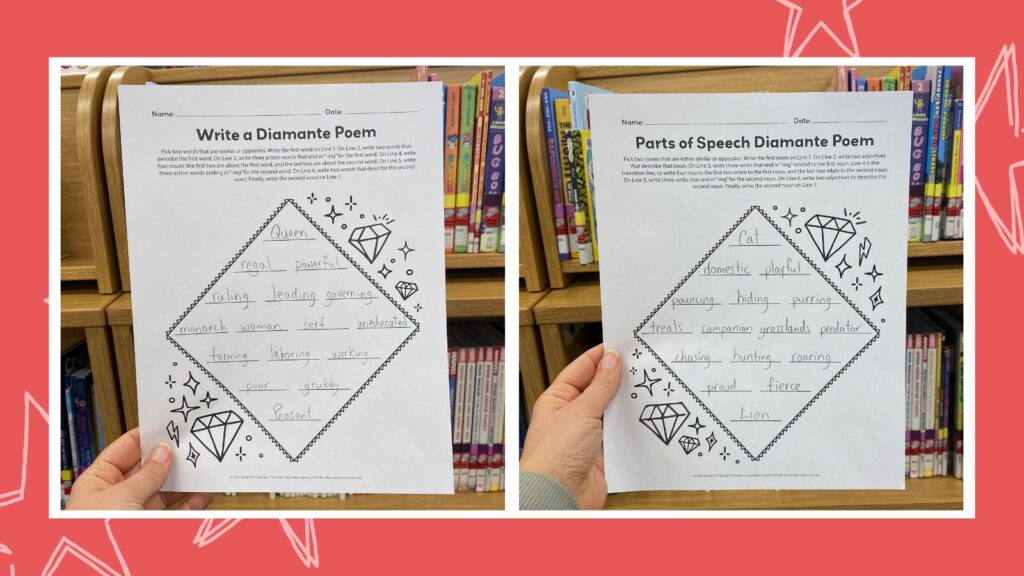 Name: Date:
Write a Diamante Poem
Pick two words that are similar or opposites. Write the first word on Line 1. On Line 2, write two words that
describe the first word. On Line 3, write three action words that end in "-ing" for the first word. On Line 4, write
four nouns: the first two are about the first word, and the last two are about the second word. On Line 5, write
three action words ending in "-ing" for the second word. On Line 6, write two words that describe the second
word. Finally, write the second word on Line 7.
Queen
regal powerful
ruling leading governing
monarch woman serf uneducated
farming laboring working
poor grubby
Peasant
Name: Date:
Parts of Speech Diamante Poem
Pick two nouns that are either similar or opposites. Write the first noun on Line 1. On Line 2, write two adjectives
that describe the first noun. On Line 3, write three verbs that end in "-ing" related to the first noun. Line 4 is the
transition line, so write four nouns: the first two relate to the first noun, and the last two relate to the second noun.
On Line 5, write three verbs that end in "-ing" for the second noun. On Line 6, write two adjectives to describe the
second noun. Finally, write the second noun on Line 7.
Cat
domestic playful
pouncing hiding purring
treats companion grasslands predator
chasing hunting roaring
proud fierce
Lion
BUG BOY